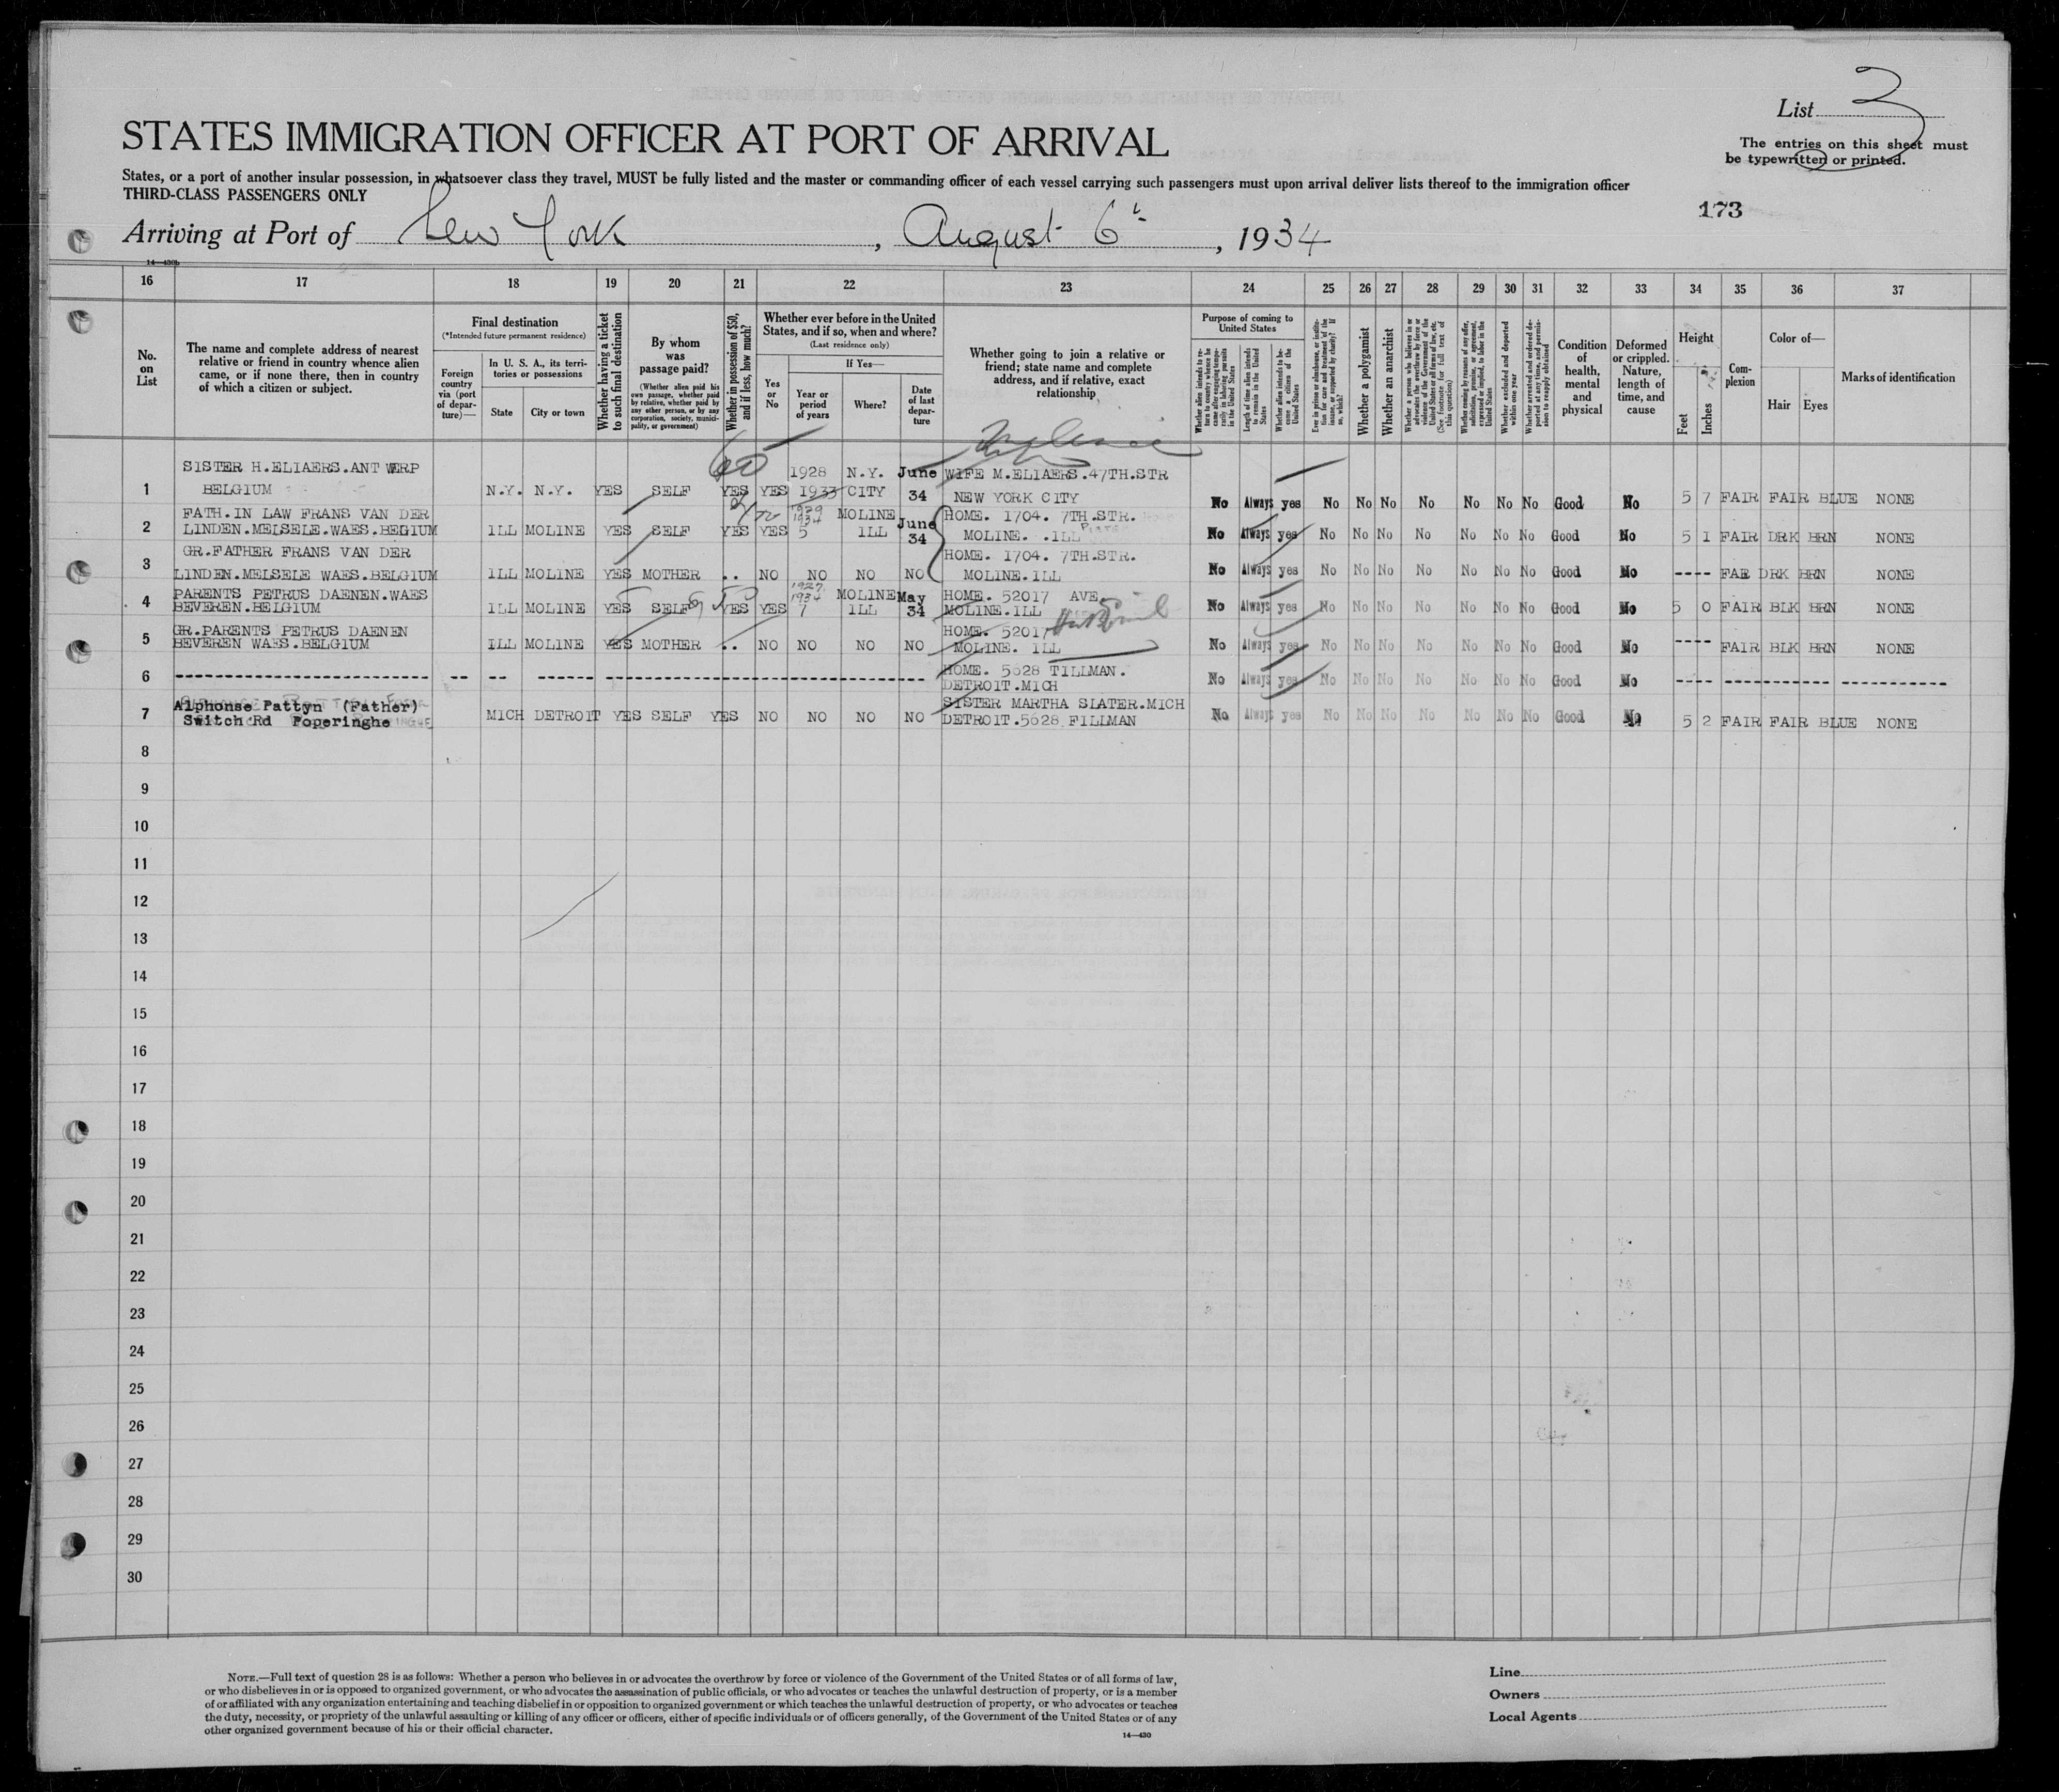 List 3
STATES IMMIGRATION OFFICER AT PORT OF ARRIVAL
The entries on this sheet must
be typewritten or printed.
States, or a port of another insular possession, in whatsoever class they travel, MUST be fully listed and the master or commanding officer of each vessel carrying such passengers must upon arrival deliver lists thereof to the immigration officer
THIRD-CLASS PASSENGERS ONLY
173
Arriving at Port of New York, August 6, 1934
16 17 18 19 20 21 22 23 24 25 26 27 28 29 30 31 32 33 34 35 36 37
No. on List
The name and complete address of nearest relative or friend in country whence alien came, or if none there, then in country of which a citizen or subject.
Final destination
(*Intended future permanent residence)
Foreign country via (port of departure)—
In U. S. A., its territories or possessions
State
City or town
Whether having a ticket to such final destination
By whom was passage paid?
(Whether alien paid his own passage, whether paid by relative, whether paid by any other person, or by any corporation, society, municipality, or government)
Whether in possession of $50, and if less, how much?
Whether ever before in the United States, and if so, when and where?
(Last residence only)
Yes or No
If Yes—
Year or period of years
Where?
Date of last departure
Whether going to join a relative or friend; state name and complete address, and if relative, exact relationship
Purpose of coming to United States
Whether alien intends to return to country whence he came after engaging temporarily in laboring pursuits in the United States
Length of time alien intends to remain in the United States
Whether alien intends to become a citizen of the United States
Ever in prison or almshouse, or institution for care and treatment of the insane, or supported by charity? If so, which?
Whether a polygamist
Whether an anarchist
Whether a person who believes in or advocates the overthrow by force or violence of the Government of the United States or all forms of law, etc. (See footnote for full text of this question)
Whether coming by reasons of any offer, solicitation, promise, or agreement, expressed or implied, to labor in the United States
Whether excluded and deported within one year
Whether arrested and ordered deported at any time, and permission to reapply obtained
Condition of health, mental and physical
Deformed or crippled. Nature, length of time, and cause
Height
Feet
Inches
Complexion
Color of—
Hair
Eyes
Marks of identification
60
1 SISTER H.ELIAERS.ANTWERP BELGIUM N.Y. N.Y. YES SELF YES YES 1928 1933 N.Y. CITY June 34 WIFE M.ELIAERS.47TH.STR NEW YORK CITY No Always yes No No No No No No No Good No 5 7 FAIR FAIR BLUE NONE
2 FATH.IN LAW FRANS VAN DER LINDEN.MELSELE.WAES.BEGIUM ILL MOLINE YES SELF YES YES 1929 1934 5 MOLINE ILL June 34 HOME. 1704. 7TH.STR. MOLINE. .ILL No Always yes No No No No No No No Good No 5 1 FAIR DRK BRN NONE
3 GR.FATHER FRANS VAN DER LINDEN.MELSELE WAES.BELGIUM ILL MOLINE YES MOTHER .. NO NO NO NO HOME. 1704. 7TH.STR. MOLINE.ILL No Always yes No No No No No No No Good No ---- FAE DRK BRN NONE
4 PARENTS PETRUS DAENEN.WAES BEVEREN.BELGIUM ILL MOLINE YES SELF YES YES 1927 1934 7 MOLINE ILL May 34 HOME. 52017 AVE. MOLINE.ILL No Always yes No No No No No No No Good No 5 0 FAIR BLK BRN NONE
5 GR.PARENTS PETRUS DAENEN BEVEREN WAES.BELGIUM ILL MOLINE YES MOTHER .. NO NO NO NO HOME. 52017 MOLINE. ILL No Always yes No No No No No No No Good No ---- FAIR BLK BRN NONE
6 HOME. 5628 TILLMAN. DETROIT.MICH No Always yes No No No No No No No Good No
7 Alphonse Pattyn (Father) Switch Rd Poperinghe MICH DETROIT YES SELF YES NO NO NO NO SISTER MARTHA SLATER.MICH DETROIT.5628 FILLMAN No Always yes No No No No No No No Good No 5 2 FAIR FAIR BLUE NONE
8
9
10
11
12
13
14
15
16
17
18
19
20
21
22
23
24
25
26
27
28
29
30
NOTE.—Full text of question 28 is as follows: Whether a person who believes in or advocates the overthrow by force or violence of the Government of the United States or of all forms of law,
or who disbelieves in or is opposed to organized government, or who advocates the assassination of public officials, or who advocates or teaches the unlawful destruction of property, or is a member
of or affiliated with any organization entertaining and teaching disbelief in or opposition to organized government or which teaches the unlawful destruction of property, or who advocates or teaches
the duty, necessity, or propriety of the unlawful assaulting or killing of any officer or officers, either of specific individuals or of officers generally, of the Government of the United States or of any
other organized government because of his or their official character.
14—430
Line
Owners
Local Agents